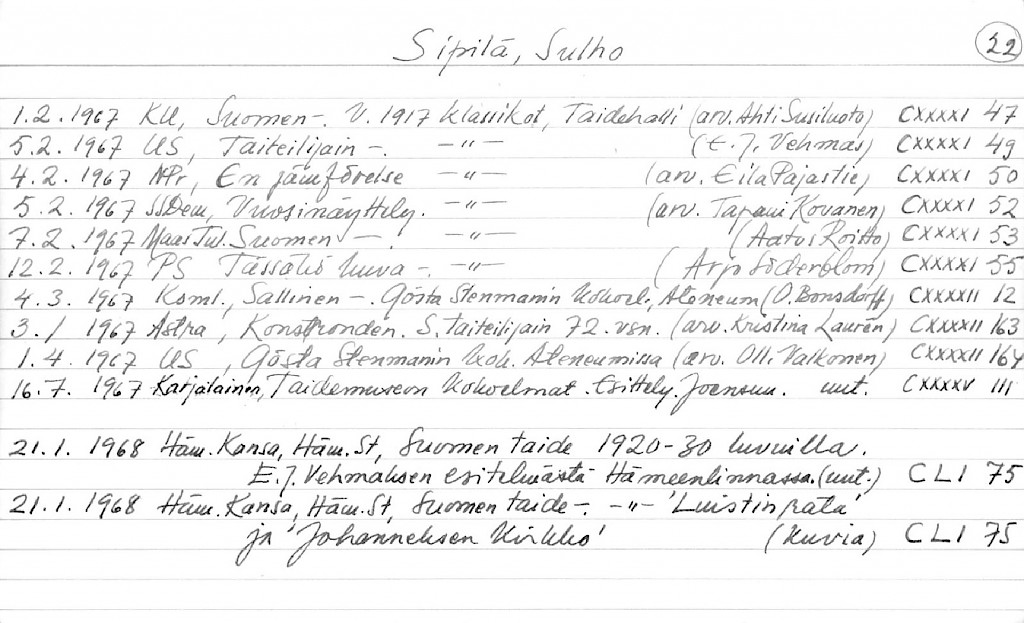 Sipilä, Sulho
22
1.2.1967 KU, Suomen-. V. 1917 klassikot, Taidehalli (arv. Ahti Susiluoto) CXXXXI 47
5.2.1967 US, Taiteilijain -. -"- (E.J. Vehmas) CXXXXI 49
4.2.1967 NPr, En jämförelse -"- (arv. Eila Pajastie) CXXXXI 50
5.2.1967 SSDem, Vuosinäyttely. -"- (arv. Tapani Kovanen) CXXXXI 52
7.2.1967 Maas Tul. Suomen -. -"- (Aatos Roitto) CXXXXI 53
12.2.1967 PS Tässäkö kuva -. -"- (Arjo Söderblom) CXXXXI 55
4.3.1967 Koml., Sallinen -. Gösta Stenmanin kokoel., Ateneum (O. Bonsdorff) CXXXXII 12
3./ 1967 Astra, Konstronden. S. taiteilijain 72. vsn. (arv. Kristina Laurén) CXXXXII 163
1.4.1967 US, Gösta Stenmanin kok. Ateneumissa (arv. Olli Valkonen) CXXXXII 164
16.7.1967 Karjalainen, Taidemuseon kokoelmat. Esittely. Joensuu. uut. CXXXXV 111
21.1.1968 Häm. Kansa, Häm. St, Suomen taide 1920-30 luvuilla.
E.J. Vehmaksen esitelmästä Hämeenlinnassa. (uut.) CLI 75
21.1.1968 Häm. Kansa, Häm. St, Suomen taide -. -"- 'Luistinrata'
ja 'Johanneksen kirkko' (kuvia) CLI 75